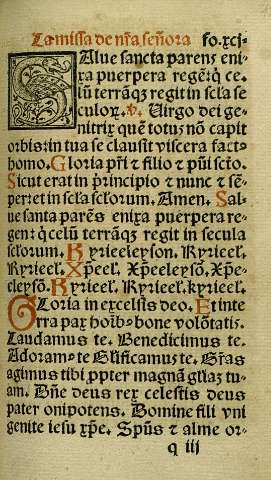 La missa de nr̃a señora fo.xcj.
SAlue sancta parens eni
xa puerpera regẽ: q̃ ce
lũ terrãqꝫ regit in scl̃a se
culoꝝ. ℣. Uirgo dei ge
nitrix quẽ totus nõ capit
orbis: in tua se clausit viscera fact⁹
homo. Gloria pr̃i et filio et spũi sct̃o.
Sicut erat in principio et nunc et sẽ
per et in scl̃a scl̃orum. Amen. Sal
ue santa parẽs enixa puerpera re
gem: q̃ celũ terrãqꝫ regit in secula
scl̃orum. Kyrieeleyson. Kyrieel̃.
Kyrieel̃. Xp̃eel̃. Xp̃eeleysõ. Xp̃e-
eleysõ. Kyrieel̃. Kyrieel̃. kyrieel̃.
GLoria in excelsis deo. Et in te
rra pax hoĩb⁹ bone volũtatis.
Laudamus te. Benedicimus te.
Adoram⁹ te Glificamuz te. Gr̃as
agimus tibi ꝓpter magnã gl̃iaz tu-
am. Dñe deus rex celestis deus
pater onipotens. Domine fili vni
genite iesu xp̃e. Spũs et alme or-
q iii